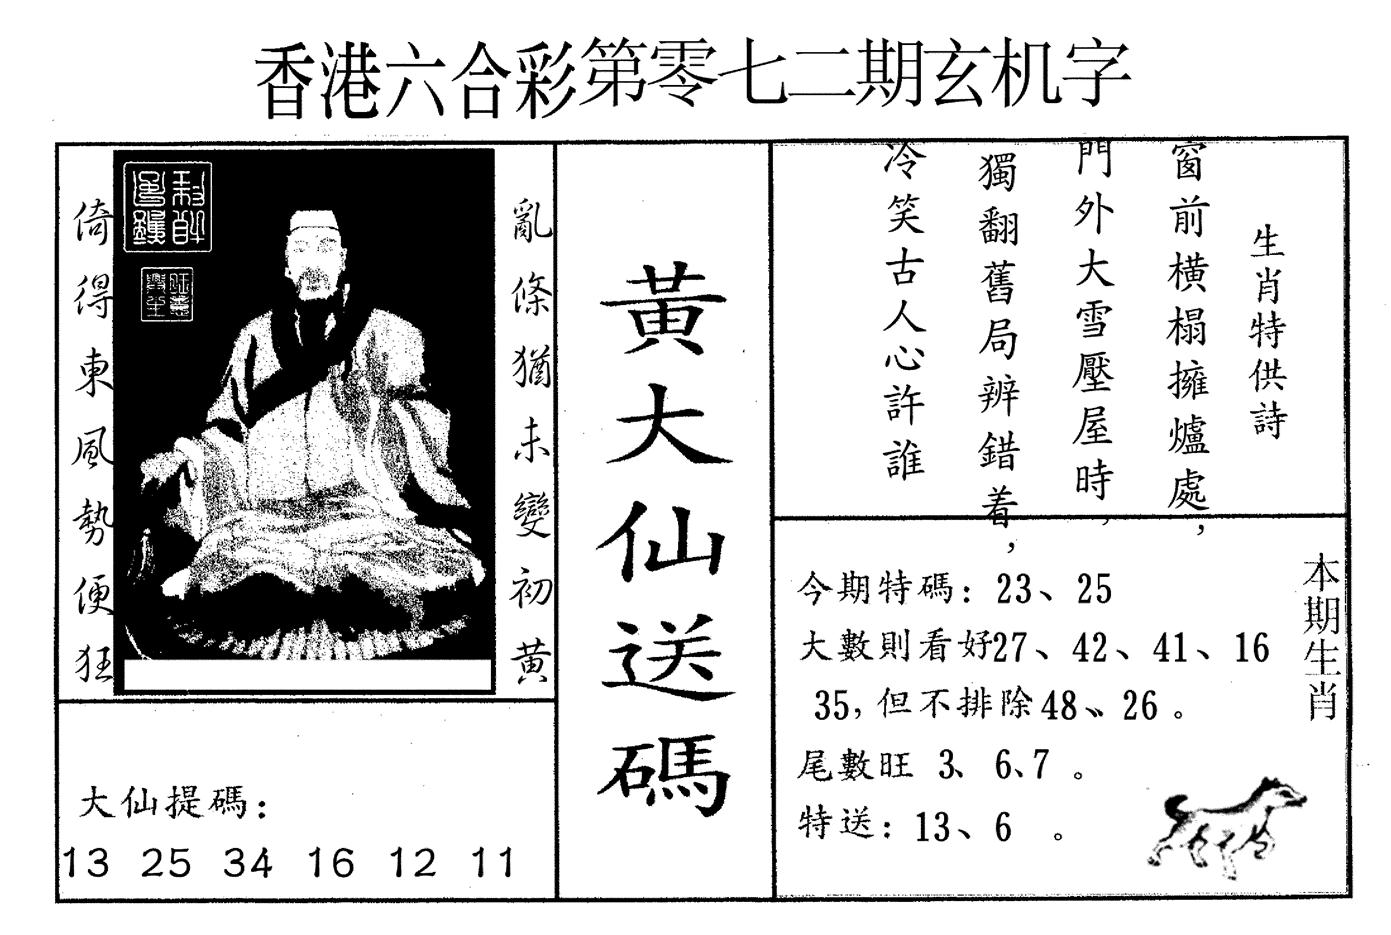 香港六合彩第零七二期玄机字
亂條猶未變初黄
倚得東風勢便狂
大仙提碼：
13 25 34 16 12 11
黃大仙送碼
生肖特供詩
窗前橫榻擁爐處，
門外大雪壓屋時，
獨翻舊局辨錯着，
冷笑古人心許誰
本期生肖
今期特碼：23、25
大數則看好27、42、41、16
35，但不排除48、26。
尾數旺 3、6、7。
特送：13、6 。